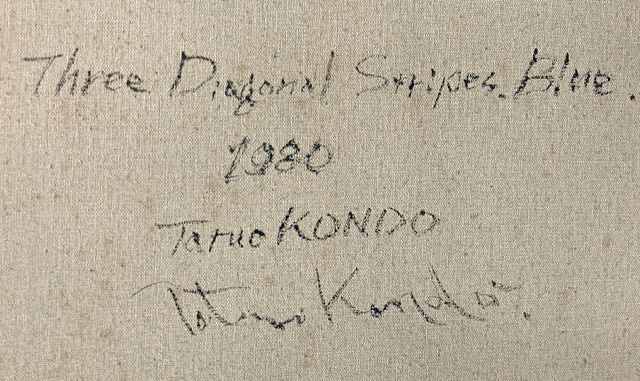 Three Diagonal Stripes. Blue.
1980
Tatuo KONDO
Tatuo Kondo.